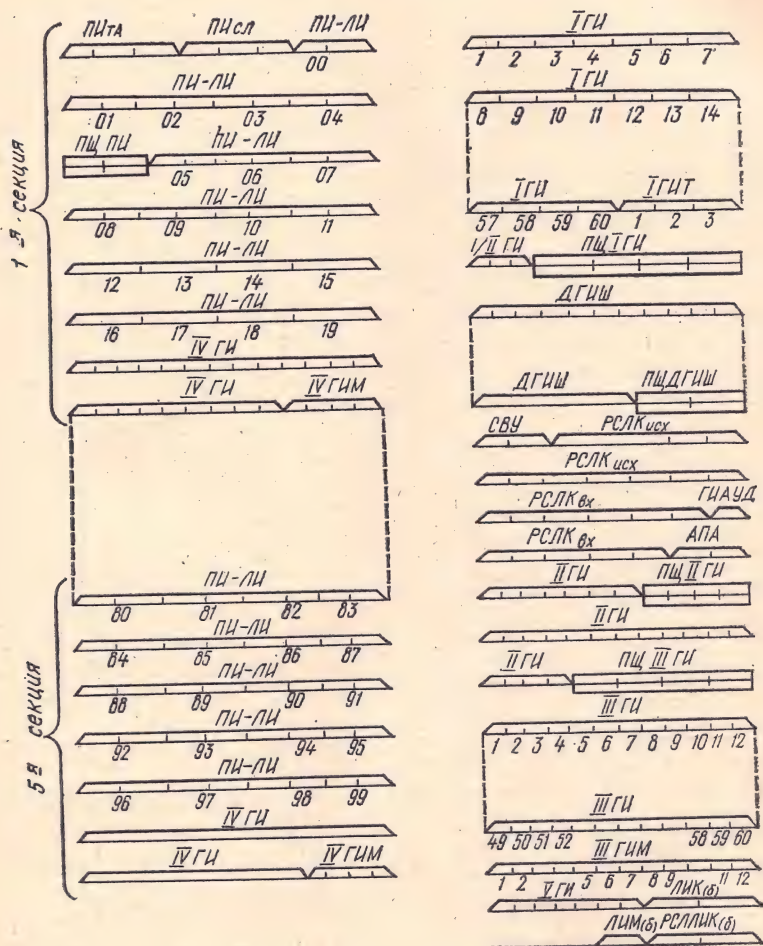 1-я секция
ПИТА ПИсл ПИ-ЛИ
00
ПИ-ЛИ
01 02 03 04
ПЩ ПИ ПИ-ЛИ
05 06 07
ПИ-ЛИ
08 09 10 11
ПИ-ЛИ
12 13 14 15
ПИ-ЛИ
16 17 18 19
IV ГИ
IV ГИ IV ГИМ
5я секция
ПИ-ЛИ
80 81 82 83
ПИ-ЛИ
84 85 86 87
ПИ-ЛИ
88 89 90 91
ПИ-ЛИ
92 93 94 95
ПИ-ЛИ
96 97 98 99
IV ГИ
IV ГИ IV ГИМ
I ГИ
1 2 3 4 5 6 7
I ГИ
8 9 10 11 12 13 14
I ГИ I ГИТ
57 58 59 60 1 2 3
I/II ГИ ПЩ I ГИ
ДГИШ
ДГИШ ПЩДГИШ
СВУ РСЛКисх
РСЛКисх
РСЛКвх ГИАУД
РСЛКвх АПА
II ГИ ПЩ II ГИ
II ГИ
II ГИ ПЩ III ГИ
III ГИ
1 2 3 4 5 6 7 8 9 10 11 12
III ГИ
49 50 51 52 58 59 60
III ГИМ
1 2 5 6 7 8 9 11 12
V ГИ ЛИК(б)
ЛИМ(б) РСЛЛИК(б)